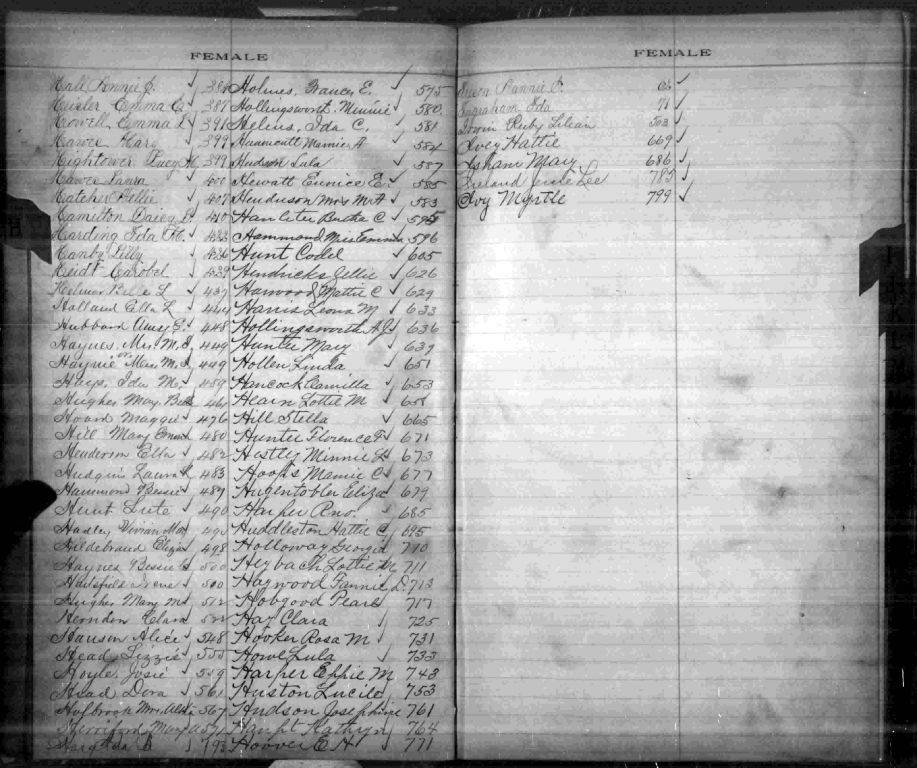 FEMALE
Hall Fannie E. 386
Emma 387
Howell Emma L 391
Hawes Mary 397
Hightower Lucy H. 399
Hawes Laura 400
Hatcher Nellie 401
Hamilton Daisy 410
Harding Ida M. 433
Hanby Lilly 436
Heidt Carobel 439
Belle L 439
Holland Etta L 444
Hubbard Amy E. 448
Haynes, Mrs M. J. 449
or
Haynie Miss M. J. 449
Hays, Ida M. 459
Hughes May Belle 461
Hoard Maggie 476
Hill Mary Emma 480
Henderson Ella 482
Hudgins Laura 483
Hammond Bessie 489
Hunt Lute 490
Hadley Vivian May
Hildebrand Eliza 498
Haynes Bessie 500
Irene 500
Hughes Mary M. 512
Herndon Clara 522
Hanson Alice 548
Head Lizzie 555
Hoyle, Josie 559
Head Dora 561
Holbrook Mrs. Alda 567
May 571
Ida
Holmes, Frances E. 575
Hollingsworth, Minnie 580
Helens, Ida C. 581
Hunnicutt Mamie A 584
Hudson Lula 587
Hewatt Eunice E. 585
Henderson Mrs M A 583
Butha C 595
Hammond Miss Emma 596
Hunt Codel 605
Hendricks Jettie 626
Harwood Mattie C 629
Harris Leona M 633
Hollingsworth A J 636
Hunter Mary 639
Hollen Linda 651
Hancock Camilla 653
Hearn Lottie M 658
Hill Stella 665
Hunter Florence 671
Hestley Minnie L 673
Hoops Mamie C 677
Hugentobler Eliza 679
Harper Rno. 685
Huddleston Hattie C 695
Holloway Georgia 710
Heybach Lottie M 711
Haywood Fannie D. 713
Hobgood Pearl 717
Hay Clara 725
Hooker Rosa M 731
Howe Lula 733
Harper Effie M 748
Huston Lucile 753
Hudson Josephine 761
Kathryn 764
Hoover E H 771
FEMALE
Fannie
Ingraham Ida 71
Irwin Ruby Lilian 503
Ivey Hattie 669
Isham Mary 686
Ireland Lee 787
Ivy Myrtle 799